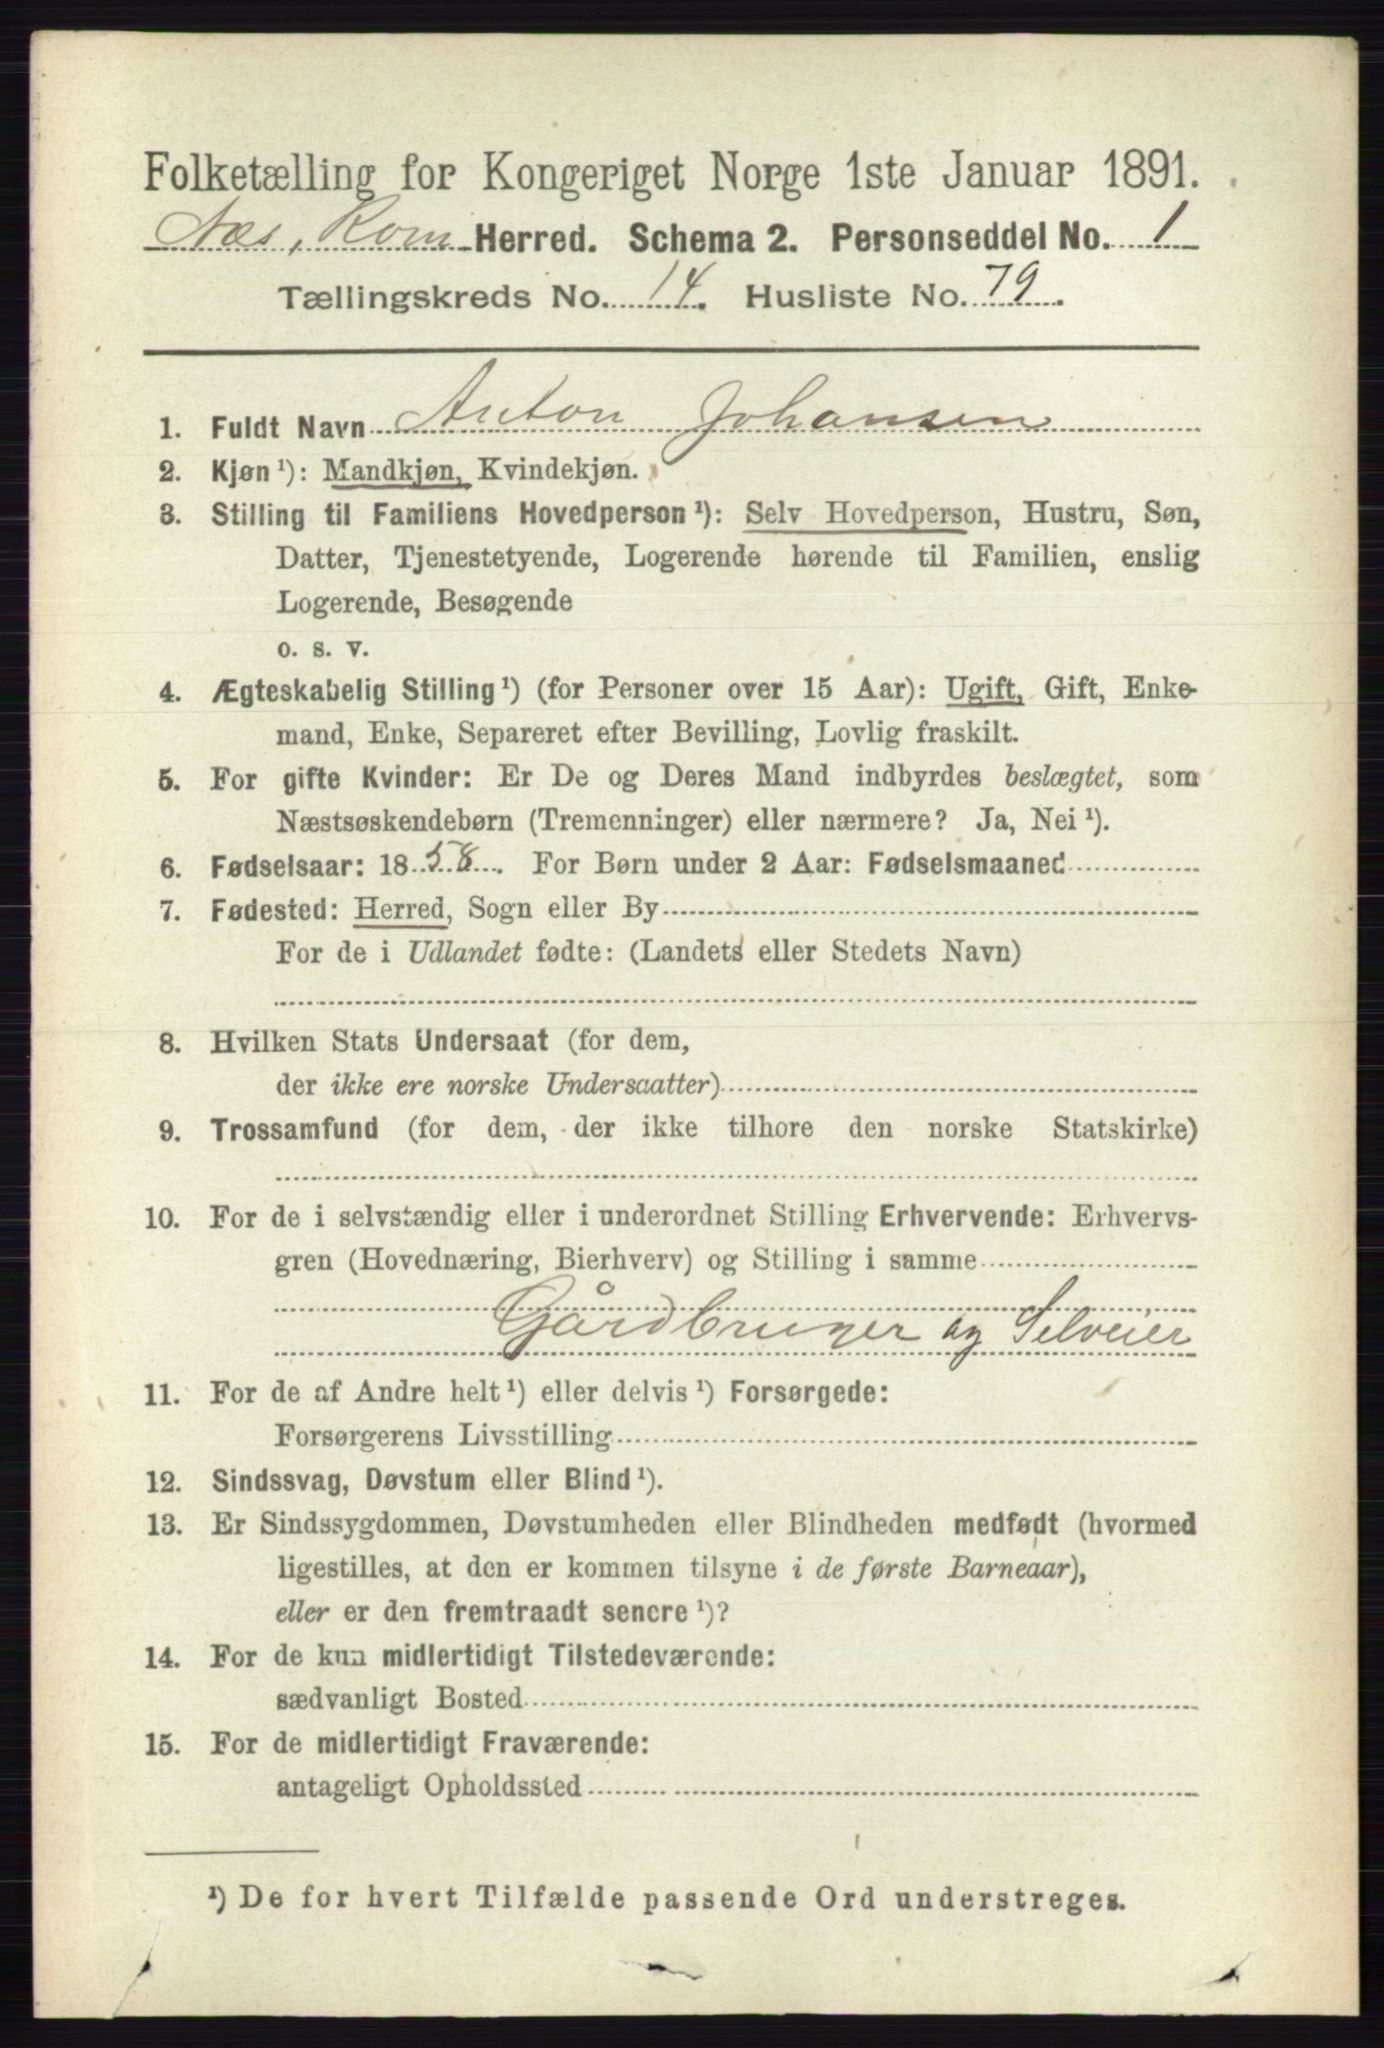 Folketælling for Kongeriget Norge 1ste Januar 1891.
Næs, Rom Herred. Schema 2. Personseddel No. 1
Tællingskreds No. 14. Husliste No. 79.
1. Fuldt Navn Anton Johansen
2. Kjøn ¹): Mandkjøn, Kvindekjøn.
3. Stilling til Familiens Hovedperson ¹): Selv Hovedperson, Hustru, Søn,
Datter, Tjenestetyende, Logerende hørende til Familien, enslig
Logerende, Besøgende
o. s. v.
4. Ægteskabelig Stilling ¹) (for Personer over 15 Aar): Ugift, Gift, Enke-
mand, Enke, Separeret efter Bevilling, Lovlig fraskilt.
5. For gifte Kvinder: Er De og Deres Mand indbyrdes beslægtet, som
Næstsøskendebørn (Tremenninger) eller nærmere? Ja, Nei ¹).
6. Fødselsaar: 1858. For Børn under 2 Aar: Fødselsmaaned
7. Fødested: Herred, Sogn eller By
For de i Udlandet fødte: (Landets eller Stedets Navn)
8. Hvilken Stats Undersaat (for dem,
der ikke ere norske Undersaatter)
9. Trossamfund (for dem, der ikke tilhøre den norske Statskirke)
10. For de i selvstændig eller i underordnet Stilling Erhvervende: Erhvervs-
gren (Hovednæring, Bierhverv) og Stilling i samme
Gårdbruger og Selveier
11. For de af Andre helt ¹) eller delvis ¹) Forsørgede:
Forsørgerens Livsstilling
12. Sindssvag, Døvstum eller Blind ¹).
13. Er Sindssygdommen, Døvstumheden eller Blindheden medfødt (hvormed
ligestilles, at den er kommen tilsyne i de første Barneaar),
eller er den fremtraadt senere ¹)?
14. For de kun midlertidigt Tilstedeværende:
sædvanligt Bosted
15. For de midlertidigt Fraværende:
antageligt Opholdssted
¹) De for hvert Tilfælde passende Ord understreges.